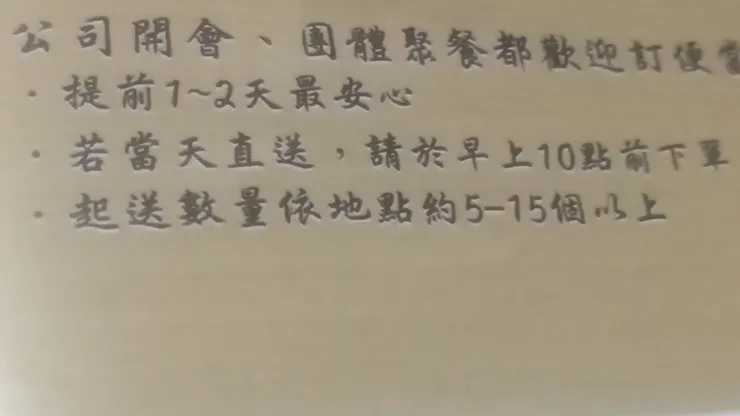 公司開會、團體聚餐都歡迎訂便當
·提前1~2天最安心
·若當天直送，請於早上10點前下單
·起送數量依地點約5-15個以上